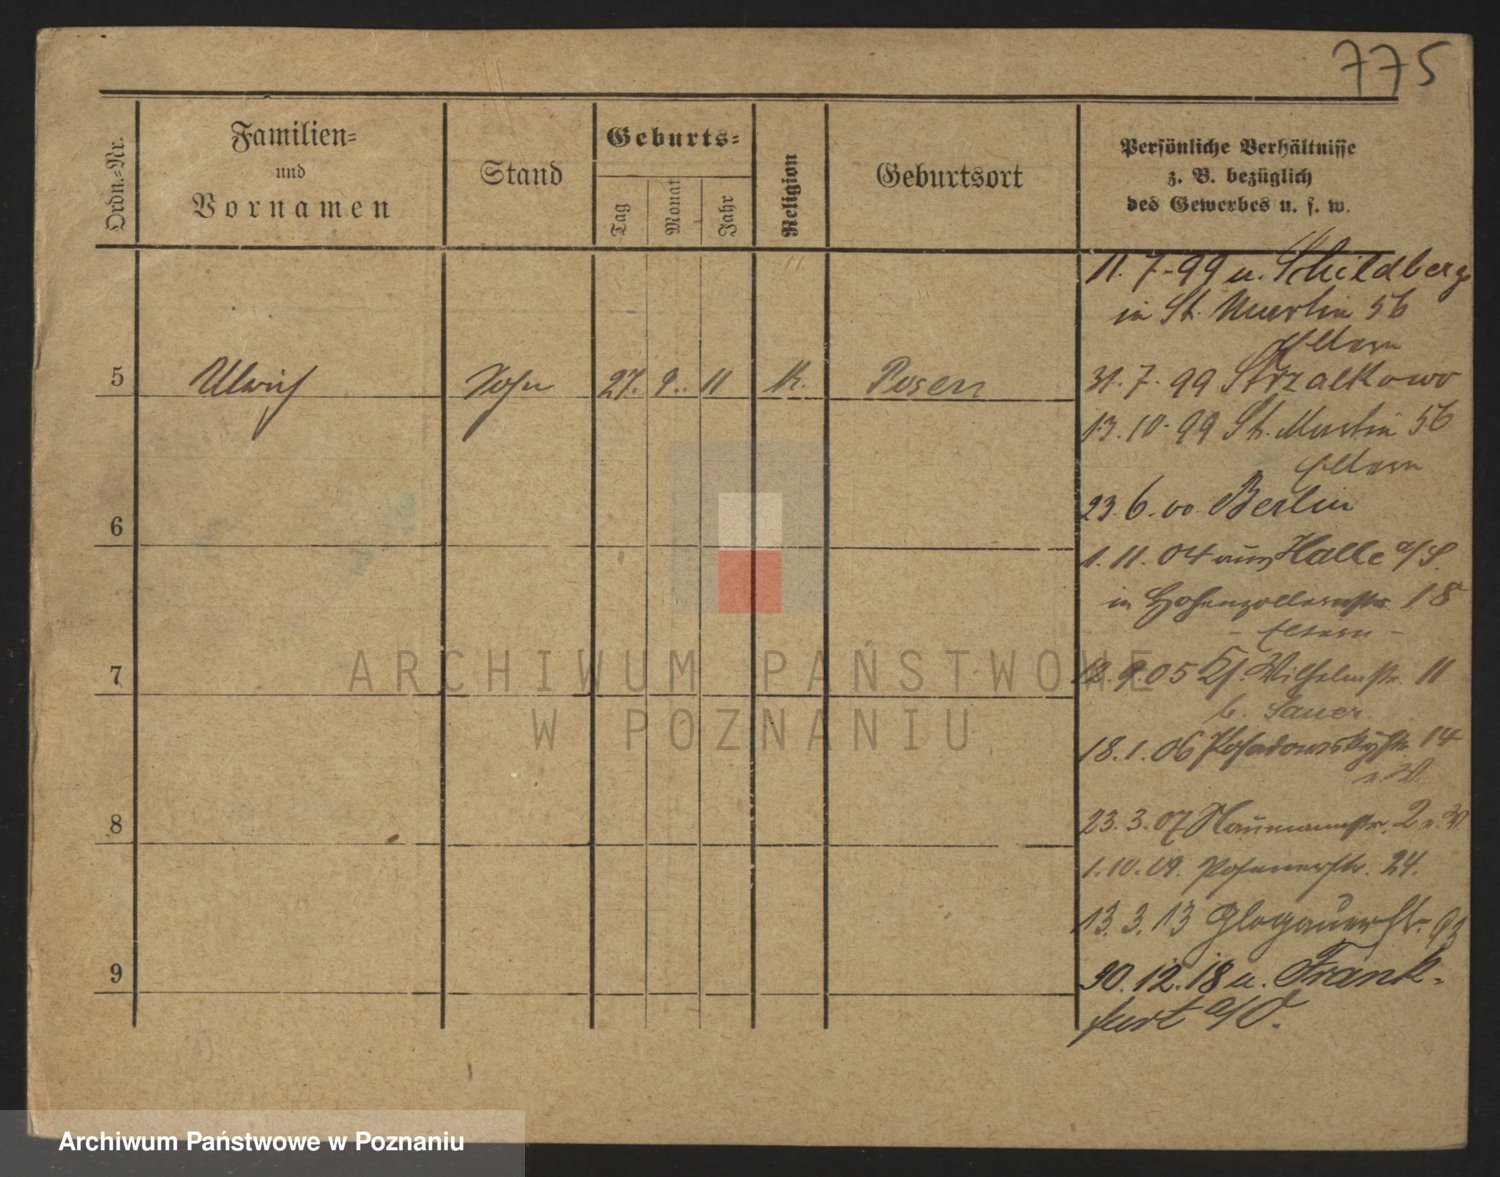 775
Ordn.-Nr.
Familien-
und
Vornamen
Stand
Geburts-
Tag
Monat
Jahr
Religion
Geburtsort
Persönliche Verhältnisse
z. B. bezüglich
des Gewerbes u. s. w.
11. 7. 99 u. Schildberg
in St. Martin 56
Eltern
5 Ulrich Sohn 27. 9. 11 K. Posen
31. 7. 99 Strzalkowo
13. 10. 99 St. Martin 56
Eltern
23. 6. 00 Berlin
6
1. 11. 04 aus Halle a/S.
in Hohenzollernstr. 18
- Eltern -
7
12. 9. 05 Kl. Wilhelmstr. 11
b. Sauer
18. 1. 06 Posadowskystr. 14
8
23. 3. 07 Naumannstr. 2
1. 10. 09. Posenerstr. 24.
13. 3. 13 Glogauerstr. 93
9
30. 12. 18 u. Frank-
furt a/O.
ARCHIWUM PAŃSTWOWE
W POZNANIU
Archiwum Państwowe w Poznaniu